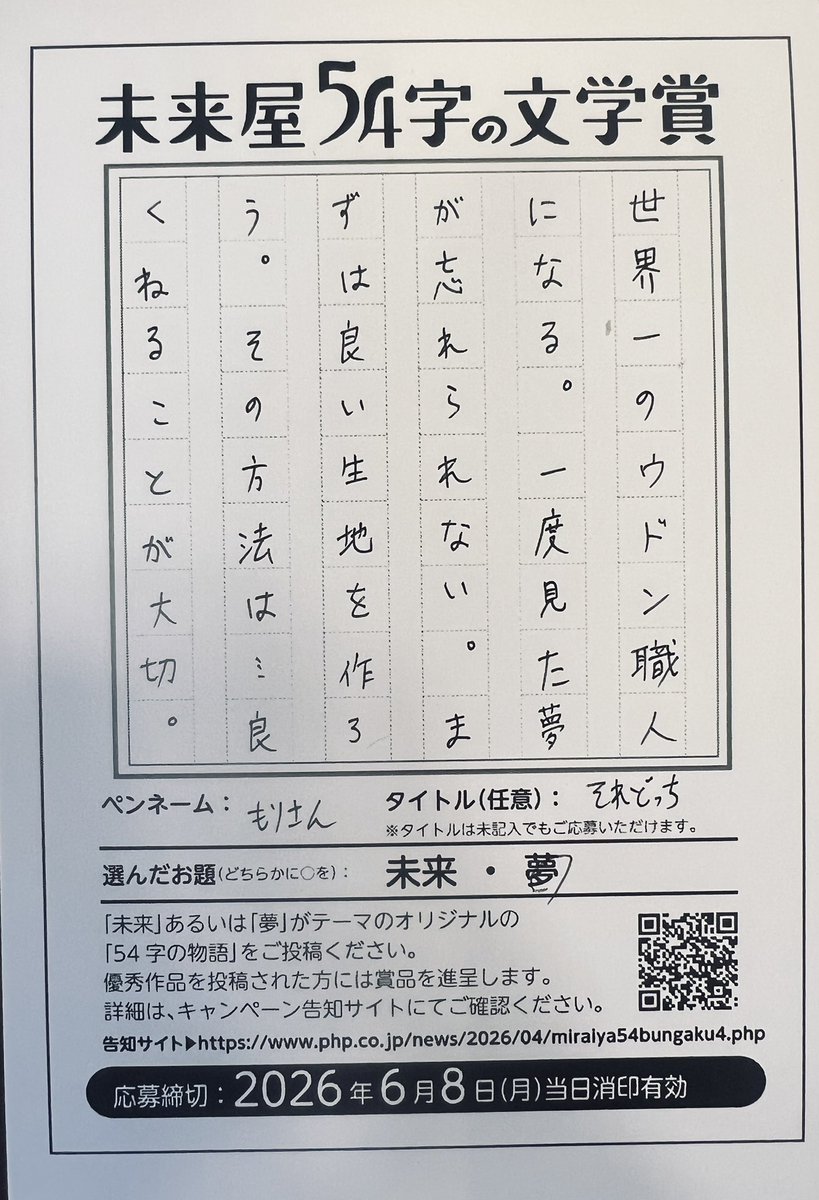 未来屋54字の文学賞
世界一のウドン職人
になる。一度見た夢
が忘れられない。ま
ずは良い生地を作ろ
う。その方法は…良
くねることが大切。
ペンネーム： もりさん
タイトル(任意)： それどっち
※タイトルは未記入でもご応募いただけます。
選んだお題(どちらかに○を)： 未来・夢
「未来」あるいは「夢」がテーマのオリジナルの
「54字の物語」をご投稿ください。
優秀作品を投稿された方には賞品を進呈します。
詳細は、キャンペーン告知サイトにてご確認ください。
告知サイト▶https://www.php.co.jp/news/2026/04/miraiya54bungaku4.php
応募締切：2026年6月8日(月)当日消印有効